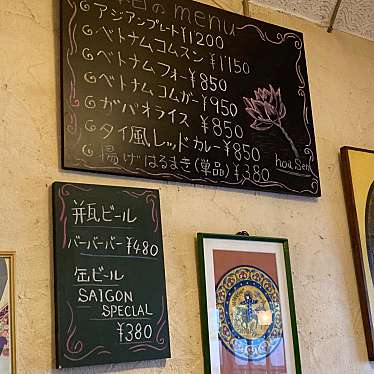 日の menu
アジアンプレート ¥1200
ベトナムコムスン ¥1150
ベトナムフォー ¥850
ベトナムコムガー ¥950
ガパオライス ¥850
タイ風レッドカレー ¥850
揚げはるまき(単品) ¥380
hoa Sen
瓶ビール
バーバーバー ¥480
缶ビール
SAIGON
SPECIAL
¥380